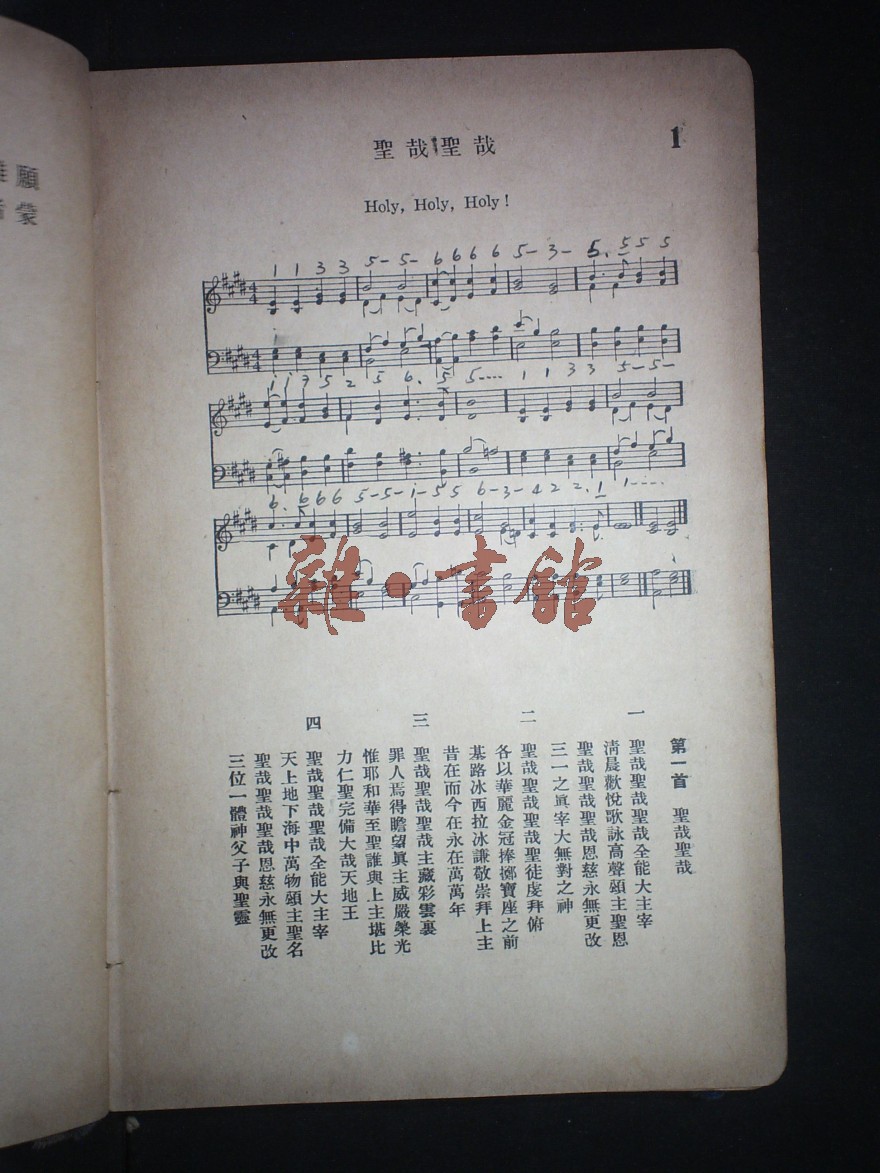 願
蒙
1
聖哉聖哉
Holy, Holy, Holy!
1 1 3 3 5– 5– 6 6 6 6 5– 3– 5. 5 5 5
1 1 7 5 2 5 6. 5 5.... 1 1 3 3 5– 5–
6. 6 6 6 5–5–1–5 5 6–3–4 2 2. 1 1.....
雜·書館
第一首 聖哉聖哉
一 聖哉聖哉聖哉全能大主宰
清晨歡悅歌詠高聲頌主聖恩
聖哉聖哉聖哉恩慈永無更改
三一之眞宰大無對之神
二 聖哉聖哉聖哉聖徒虔拜俯
各以華麗金冠捧擲寶座之前
基路冰西拉冰謙敬崇拜上主
昔在而今在永在萬萬年
三 聖哉聖哉聖哉主藏彩雲裏
罪人焉得瞻望眞主威嚴榮光
惟耶和華至聖誰與上主堪比
力仁聖完備大哉天地王
四 聖哉聖哉聖哉全能大主宰
天上地下海中萬物頌主聖名
聖哉聖哉聖哉恩慈永無更改
三位一體神父子與聖靈